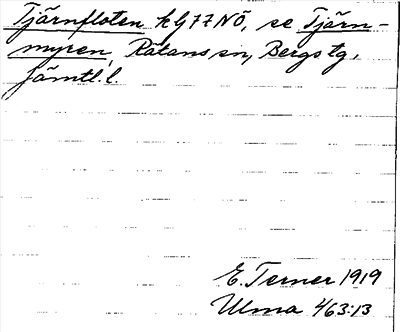 Tjärnfloten k GJ7ZNÖ, se Tjärn-
myren, Rätans sn, Bergs tg,
Jämtl. l.
E. Terner 1919
Ulma 463:13